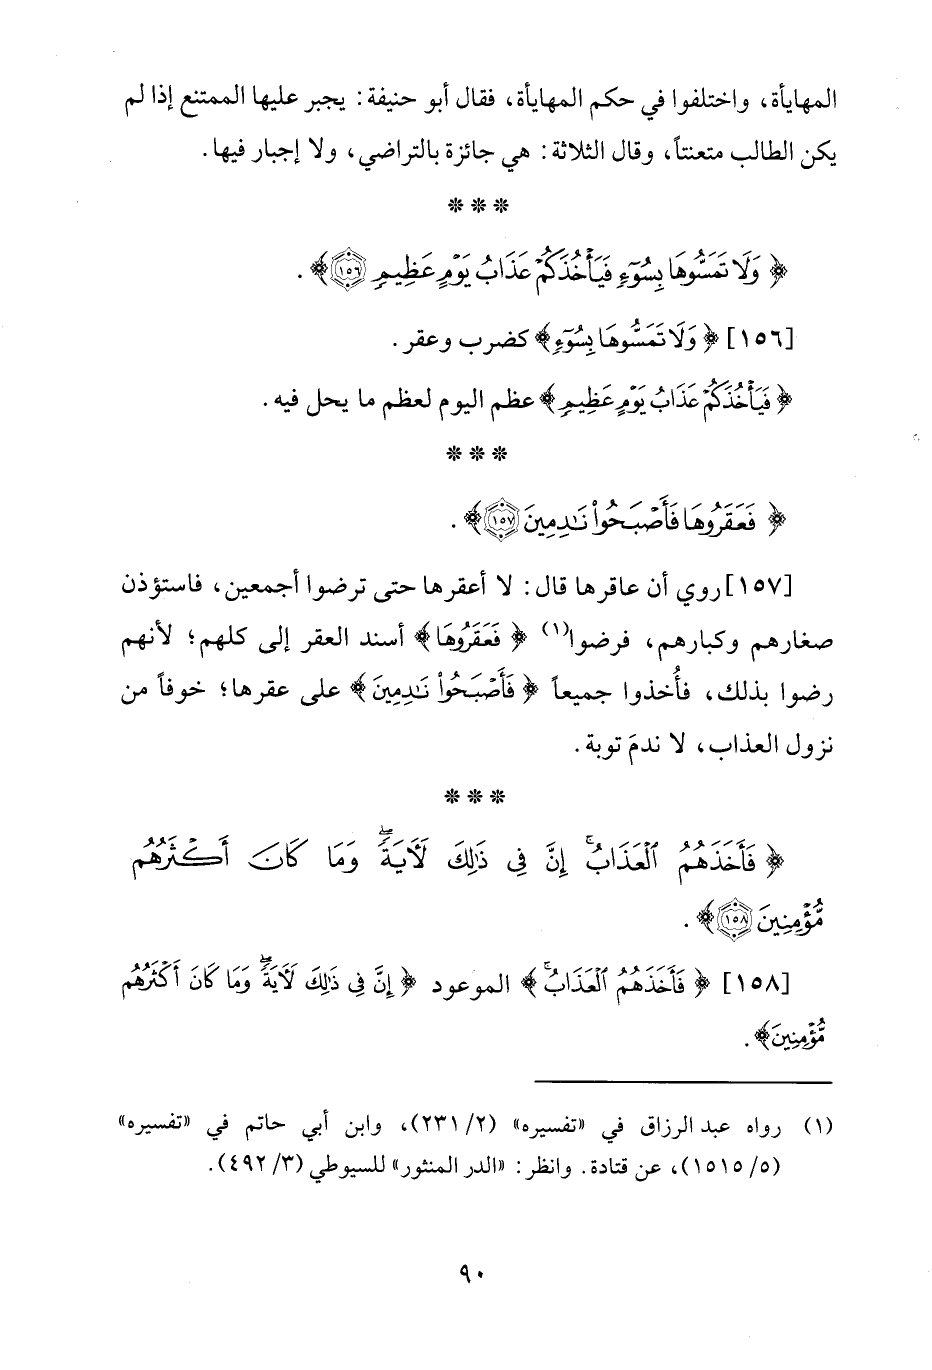 المهايأة، واختلفوا في حكم المهايأة، فقال أبو حنيفة: يجبر عليها الممتنع إذا لم
يكن الطالب متعنتاً، وقال الثلاثة: هي جائزة بالتراضي، ولا إجبار فيها.
***
﴿وَلَا تَمَسُّوهَا بِسُوٓءٍ فَيَأْخُذَكُمْ عَذَابُ يَوْمٍ عَظِيمٍ ١٥٦﴾.
[١٥٦] ﴿وَلَا تَمَسُّوهَا بِسُوٓءٍ﴾ كضرب وعقر.
﴿فَيَأْخُذَكُمْ عَذَابُ يَوْمٍ عَظِيمٍ﴾ عظم اليوم لعظم ما يحل فيه.
***
﴿فَعَقَرُوهَا فَأَصْبَحُوا۟ نَٰدِمِينَ ١٥٧﴾.
[١٥٧] روي أن عاقرها قال: لا أعقرها حتى ترضوا أجمعين، فاستؤذن
صغارهم وكبارهم، فرضوا(١) ﴿فَعَقَرُوهَا﴾ أسند العقر إلى كلهم؛ لأنهم
رضوا بذلك، فأُخذوا جميعاً ﴿فَأَصْبَحُوا۟ نَٰدِمِينَ﴾ على عقرها؛ خوفاً من
نزول العذاب، لا ندمَ توبة.
***
﴿فَأَخَذَهُمُ ٱلْعَذَابُ ۚ إِنَّ فِى ذَٰلِكَ لَـَٔايَةً ۖ وَمَا كَانَ أَكْثَرُهُم
مُّؤْمِنِينَ ١٥٨﴾.
[١٥٨] ﴿فَأَخَذَهُمُ ٱلْعَذَابُ ۚ﴾ الموعود ﴿إِنَّ فِى ذَٰلِكَ لَـَٔايَةً ۖ وَمَا كَانَ أَكْثَرُهُم
مُّؤْمِنِينَ﴾.
(١) رواه عبد الرزاق في «تفسيره» (٢/ ٢٣١)، وابن أبي حاتم في «تفسيره»
(٥/ ١٥١٥)، عن قتادة. وانظر: «الدر المنثور» للسيوطي (٣/ ٤٩٢).
٩٠